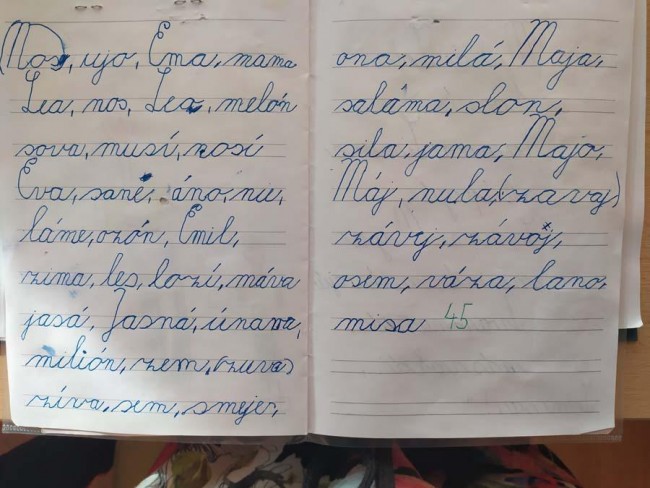 (Mos, ujo, Ema, mama
Lea, nos, Lea, melón
sova, musí, nosí
Eva, sané, áno, nie,
láme, ozón, Emil,
zima, les, lozí, máva
jasá, Jasná, únava,
milión, zem, (zuva)
zíva, sem, smeje,
ona, milá, Maja,
saláma, slon,
sila, jama, Majo,
Máj, nula, (zavej)
závej, závoj,
osem, váza, lano,
misa 45